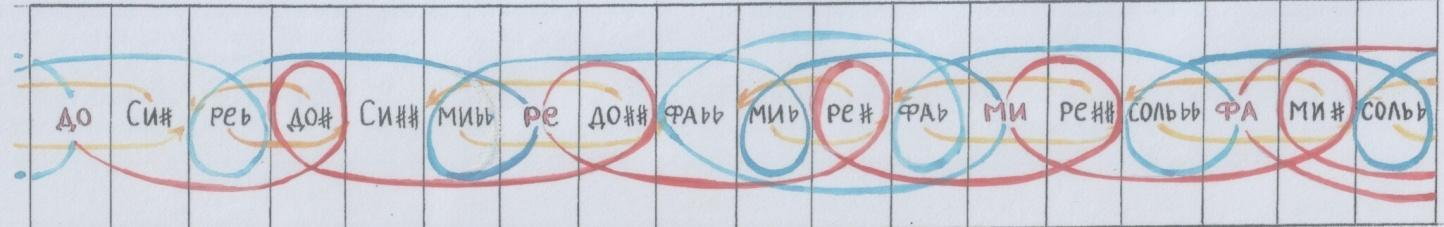 ДО СИ# РЕb ДО# СИ## МИbb РЕ ДО## ФАbb МИb РЕ# ФАb МИ РЕ## СОЛЬbb ФА МИ# СОЛЬb